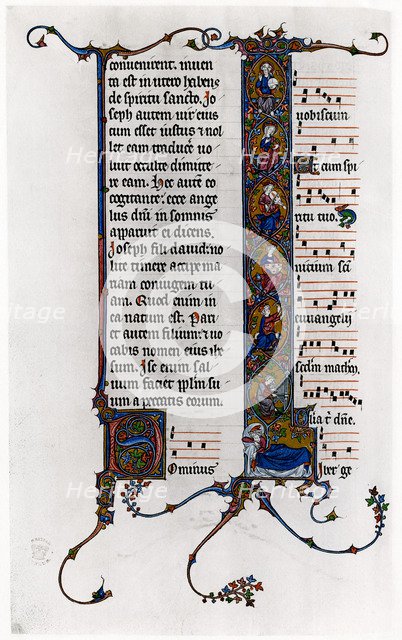 conuenirent. inuen
ta est in utero habens
de spiritu sancto. Jo
seph autem uir eius
cum esset iustus ⁊ nol
let eam traduce͛ uo
luit occulte dimitte
re eam. Hec aut̄ eo
cogitante. ecce ange
lus dn̄i in somnis
apparuit ei dicens.
Joseph fili dauid no
lite timere accipe ma
riam coniugem tu
am. Quod enim in
ea natum est. Pari
et autem filium ⁊ uo
cabis nomen eius ihe
sum. Ipse enim sal
uum faciet pp̄lm su
um a peccatis eorum.
Dominus
uobiscum
Et cum spi
ritu tuo.
Inicium sc̄i
euuangelij
scdm matheu.
Gloria t̄ dn̄e.
Liber ge
Heritage